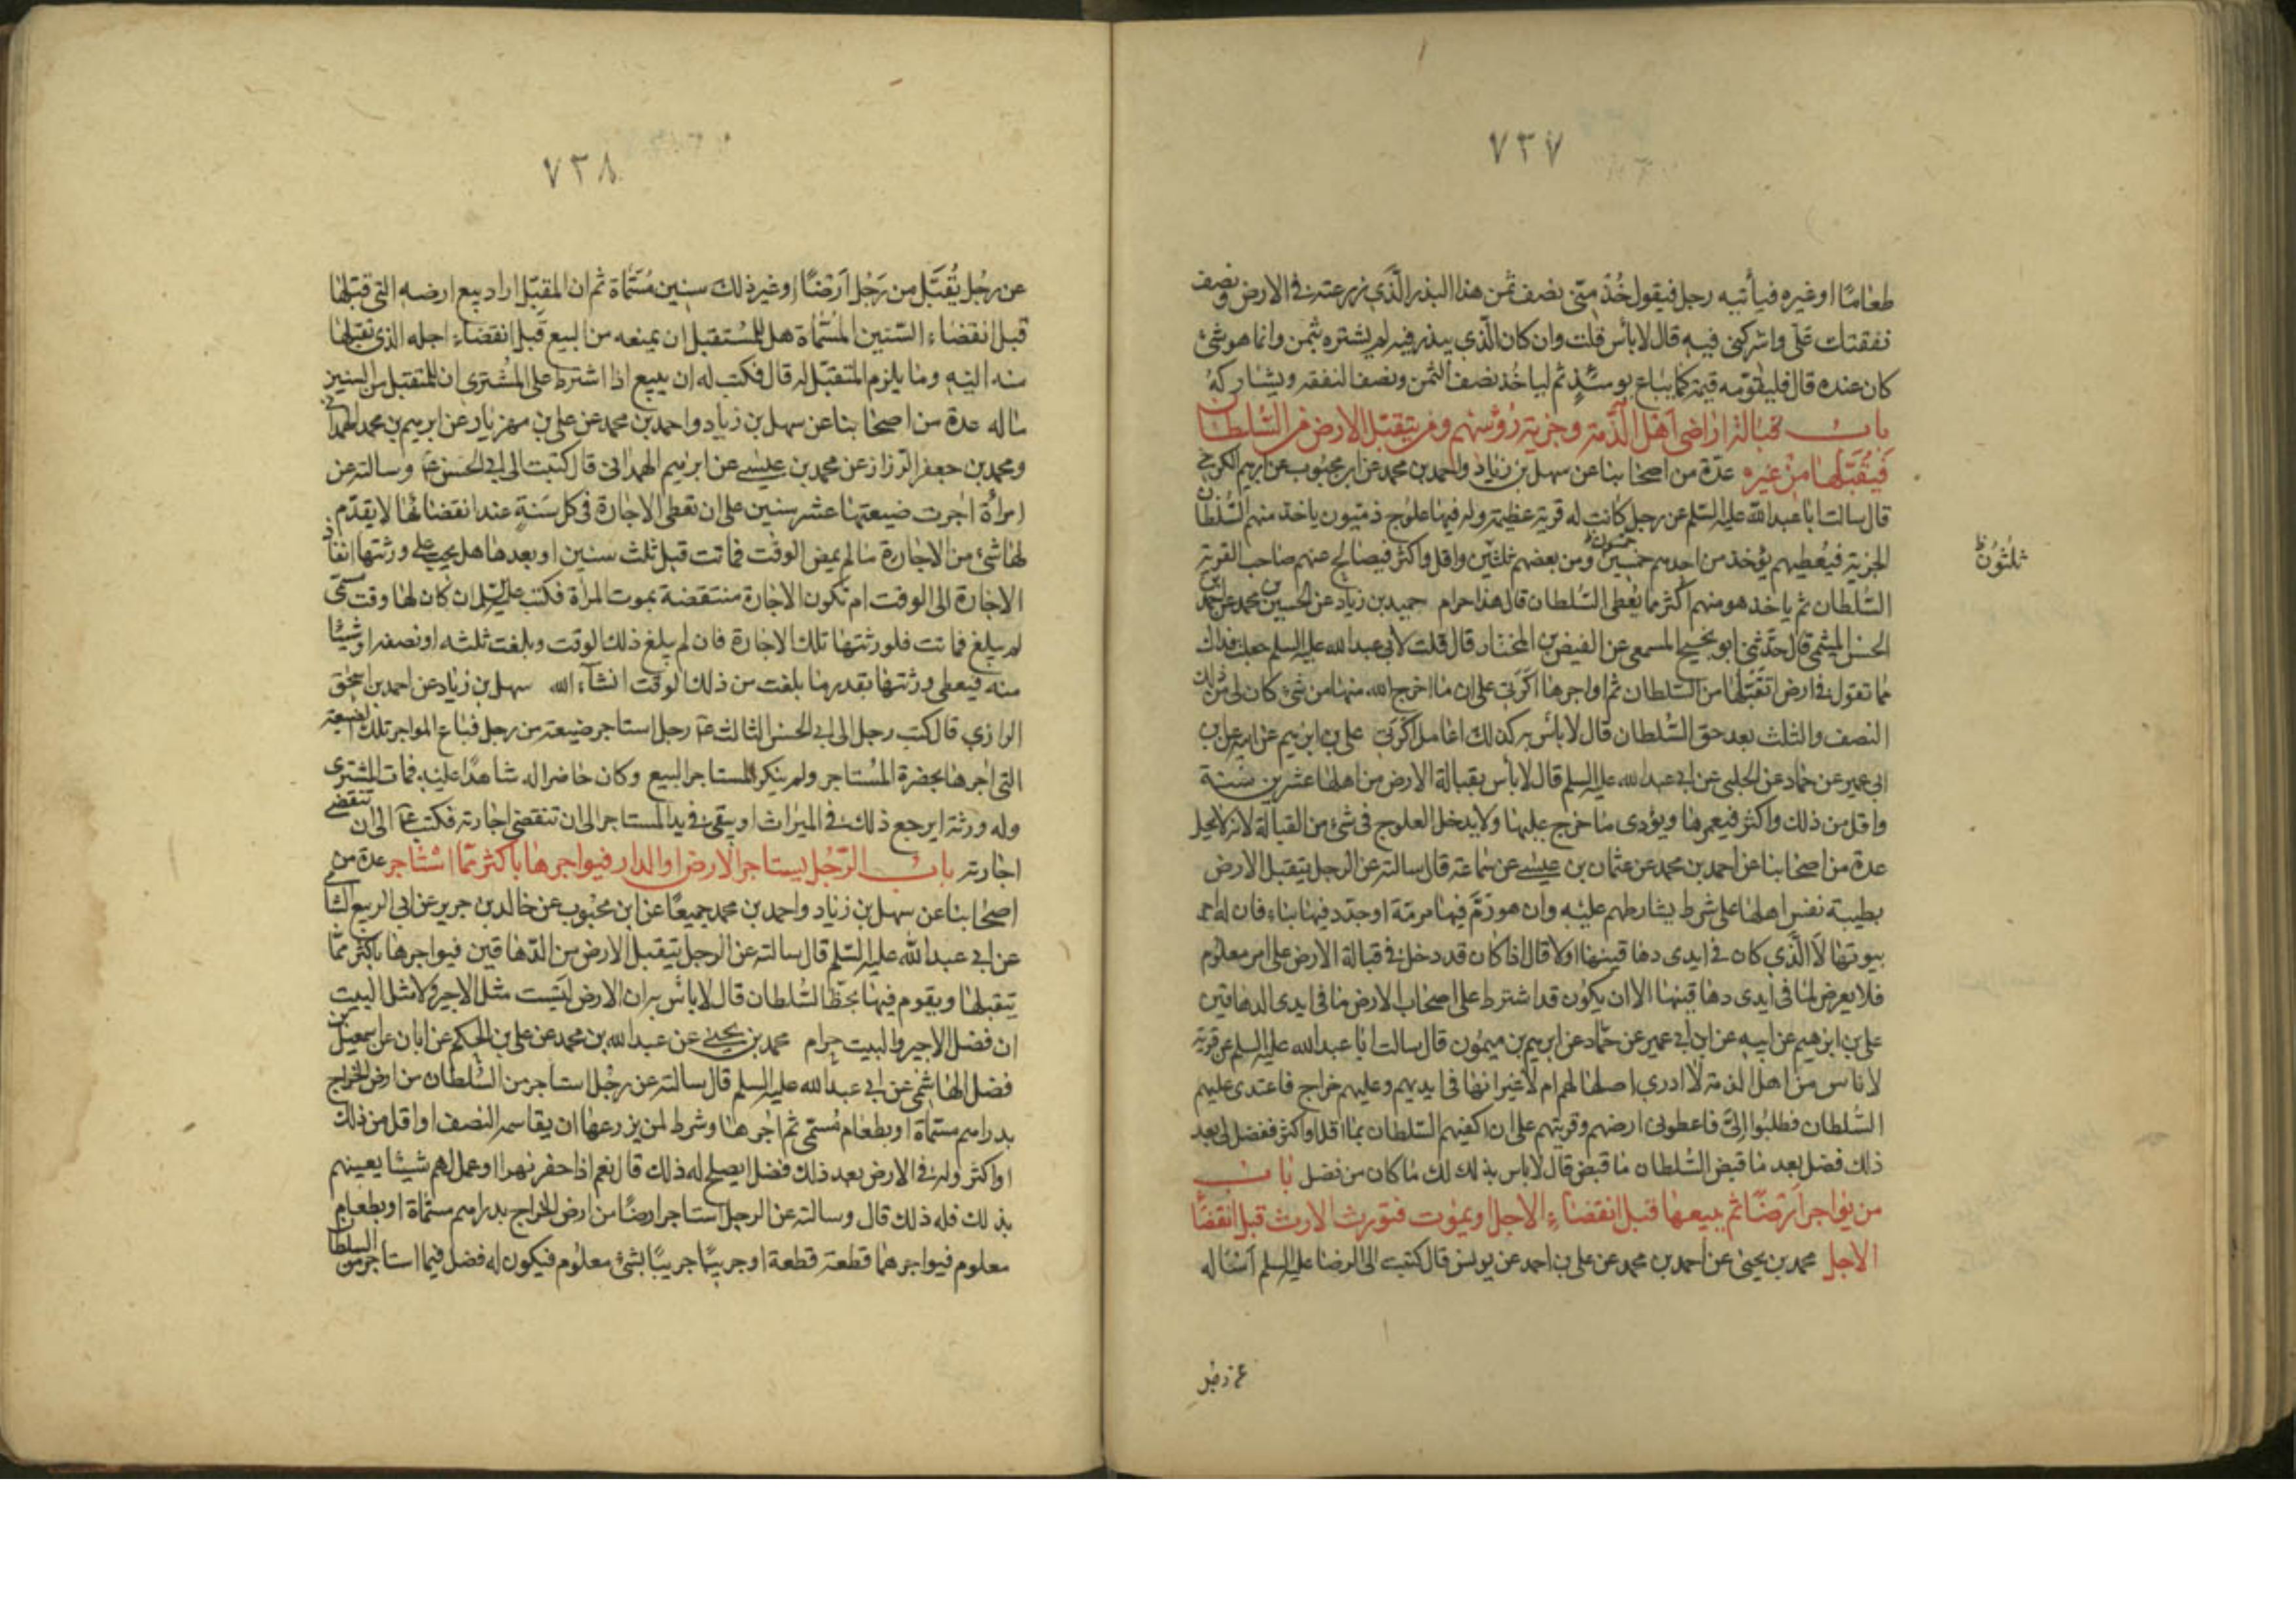 ٧٣٧
طعاما او غيره فيأتيه رجل فيقول خُذ مِنّي نصف ثمن هذا البذر الّذي زرعته في الارض ونصف
نفقتك علَي واشركني فيه قال لا بأس قلت وان كان الّذي يبذر فيه لم يشتره بثمن وانما هو شئ
كان عنده قال فليقوّمه قيمة كما يباع يومئذٍ ثم لياخُذ نصف الثمن ونصف النفقه ويشاركهُ
باب قبالة اراضى اهل الذّمة وجزية رؤُسهم ومن يتقبّل الارض من السُّلطان
فيُقَبّلها من غيره عدّة من اصحابنا عن سهل بن زياد واحمد بن محمد عن ابن محبوب عن ابرهيم الكرخي
قال سالت ابا عبد الله عليه السّلم عن رجل كانت له قرية عظيمة وله فيها علوج ذمّيون ياخذ منهم السُّلطان
الجزية فيُعطيهم يؤخذ من احدهم خمسين ومن بعضهم ثلثين واقل واكثر فيصالح عنهم صاحب القرية
ثلثُون ظ
السُّلطان ثم ياخذ هو منهم اكثر مما يُعطى السُّلطان قال هذا حرام حميد بن زياد عن الحسين بن محمد عن احمد بن
الحسن الميثمى قال حدّثنى ابو نجيح المسمعى عن الفيض بن المختار قال قلت لابى عبد الله عليه السلم جعلت فداك
ما تقول في ارض اتقبّلها من السّلطان ثم اواجرها اكرَتى على ان ما اخرج الله منها من شئ كان لى من ذلك
النصف والثلث بعد حق السُّلطان قال لا بأس به كذلك اعامل اكرَتى على بن ابرهيم عن ابيه عن ابن
ابى عمير عن حماد عن الحلبى عن ابى عبد الله عليه السلم قال لا بأس بقبالة الارض من اهلها عشرين سنة
واقل من ذلك واكثر فيعمرها ويؤدى ما خرج عليها ولا يدخل العلوج فى شئ من القبالة لانه لا يحل
عدة من اصحابنا عن احمد بن محمد عن عثمان بن عيسى عن سماعة قال سالته عن الرجل يتقبل الارض
بطيبة نفس اهلها على شرط يشارطهم عليه وان هو رَمَّ فيها مرمّة او جدّد فيها بناء فان له اجر
بيوتها الا الّذي كان فى ايدى دهاقينها اولا قال اذا كان قد دخل فى قبالة الارض على امر معلوم
فلا يعرض لما فى ايدى دهاقينها الا ان يكون قد اشترط على اصحاب الارض ما فى ايدى الدهاقين
على بن ابرهيم عن ابيه عن ابن ابى عمير عن حمّاد عن ابرهيم بن ميمُون قال سالت ابا عبد الله عليه السلم عن قرية
لاناس من اهل الذمة لا ادرى اصلها لهم ام لا غير انها فى ايديهم وعليهم خراج فاعتدى عليهم
السُّلطان فطلبُوا الىَّ فاعطونى ارضهم وقريتهم على ان اكفيهم السّلطان بما اقل او اكثر ففضل لى بعد
ذلك فضل بعد ما قبض السُّلطان ما قبض قال لا باس بذلك لك ما كان من فضل باب
من يؤاجر ارضًا ثم يبيعها قبل انقضاء الاجل او يموت فتورث الارث قبل انقضا
الاجل محمد بن يحيى عن احمد بن محمد عن على بن احمد عن يونس قال كتبت الى الرضا عليه السلم اساله
٧٣٨
عن رجُل يُقَبَّل من رَجُل اَرْضًا او غير ذلك سنين مُسَمّاة ثم ان المقبّل اراد بيع ارضه التى قبّلها
قبل انقضاء السّنين المُسمّاة هل للمُستقبل ان يمنعه من البيع قبل انقضاء اجله الذى تقبلها
منه اليه وما يلزم المتقبّل له قال فكتب له ان يبيع اذا اشترط على المشترى ان للمتقبل من السنين
ما له عدة من اصحابنا عن سهل بن زياد واحمد بن محمد عن على بن مهزيار عن ابرهيم بن محمد الهمدانى
ومحمد بن جعفر الرزاز عن محمد بن عيسى عن ابرهيم الهمدانى قال كتبت الى ابى الحسن ع وسالته عن
امراة اجرت ضيعتها عشر سنين على ان تعطى الاجارة فى كل سَنَةٍ عند انقضائها لا يقدّم
لها شئ من الاجارة ما لم يمض الوقت فماتت قبل ثلث سنين او بعدها هل يجب على ورثتها انفاذ
الاجارة الى الوقت ام تكون الاجارة منتقضة بموت المرأة فكتب عليه السلم ان كان لها وقت مسمّى
لم يبلغ فماتت فلورثتها تلك الاجارة فان لم يبلغ ذلك الوقت وبلغت ثلثه او نصفه او شيئا
منه فيعطى ورثتها بقدر ما بلغت من ذلك الوقت انشآء الله سهل بن زياد عن احمد بن اسحق
الرازي قال كتب رجل الى ابى الحسن الثالث ع رجل استاجر ضيعة من رجل فباع المواجر تلك الضيعة
التى اجرها بحضرة المُستاجر ولم ينكر المستاجر البيع وكان حاضرا له شاهدًا عليه فمات المشترى
وله ورثة ايرجع ذلك فى الميراث او يبقى فى يد المستاجر الى ان تنقضى اجارته فكتب ع الى ان تنقضى
اجارته باب الرّجُل يستاجر الارض او الدار فيواجرها باكثر ممّا استاجر عدة من
اصحابنا عن سهل بن زياد واحمد بن محمد جميعًا عن ابن محبُوب عن خالد بن جرير عن ابى الربيع الشا
عن ابى عبد الله عليه السّلم قال سالته عن الرجل يتقبل الارض من الدّهاقين فيواجرها باكثر ممّا
يتقبلها ويقوم فيها بحظّ السُّلطان قال لا بأس به ان الارض ليَست مثل الاجير ولا مثل البيت
ان فضل الاجير والبيت حرام محمد بن يحيى عن عبد الله بن محمد عن على بن الحكم عن ابان عن اسمعيل بن
فضل الهاشمى عن ابى عبد الله عليه السلم قال سالته عن رجُل استاجر من السُّلطان من ارض الخراج
بدراهم مسمّاة او بطعام مُسمّى ثم اجرها وشرط لمن يزرعها ان يقاسمه النصف او اقل من ذلك
او اكثر وله فى الارض بعد ذلك فضل ايصلح له ذلك قال نعم اذا حفر نهرا او عمل لهم شيئا يعينهم
بذلك فله ذلك قال وسالته عن الرجل استاجر ارضًا من ارض الخراج بدراهم مسمّاة او بطعام
معلوم فيواجرها قطعة قطعة او جريبًا جريبًا بشئ معلوم فيكون له فضل فيما استاجر من السلطا